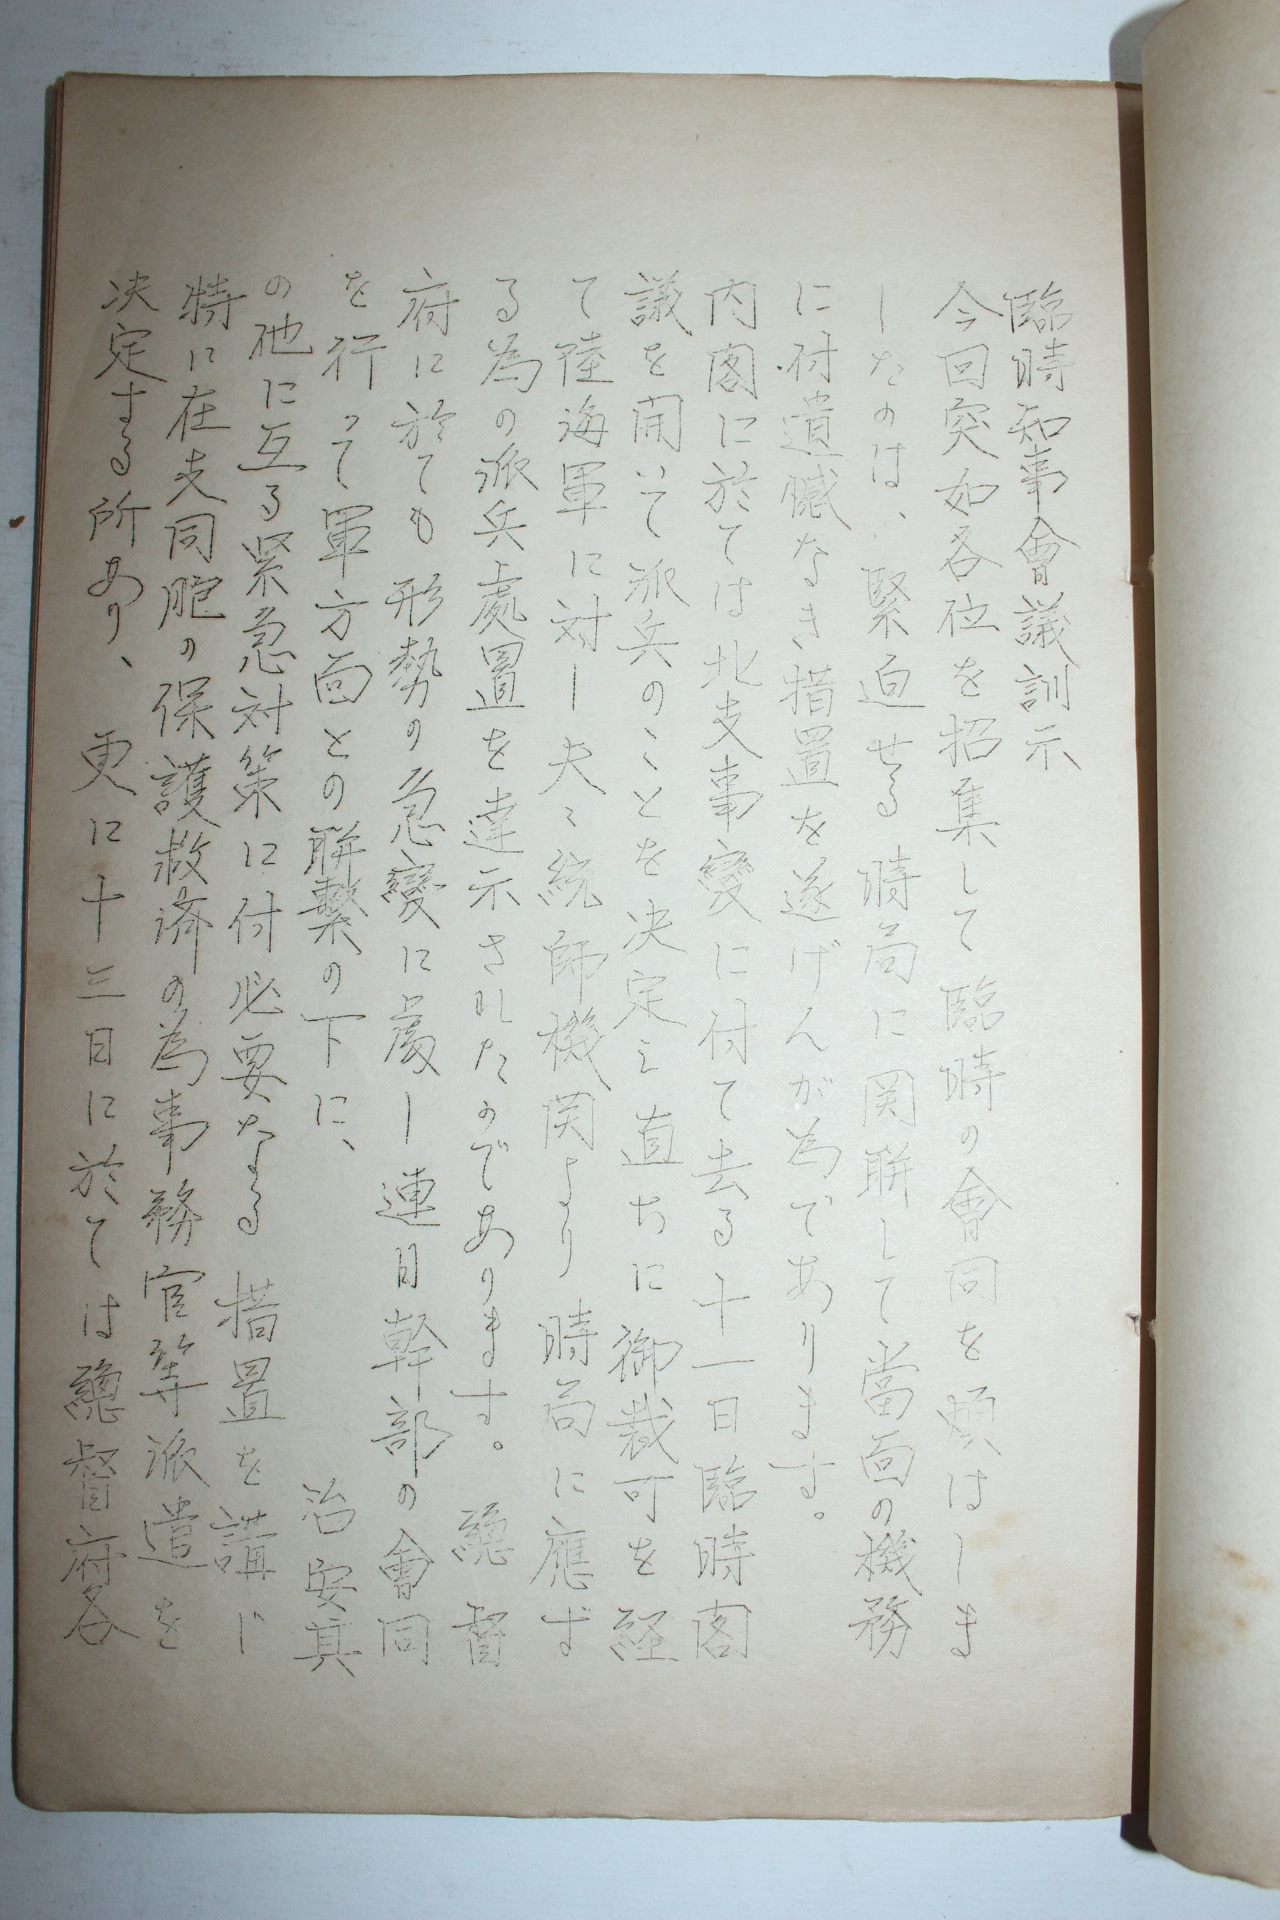 臨時知事會議訓示
今回突如各位を招集して臨時の會同を煩はしま
したのは、緊迫せる時局に関聨して當面の機務
に付遺憾なき措置を遂げんが為であります。
内閣に於ては北支事變に付て去る十一日臨時閣
議を開いて派兵のことを決定し直ちに御裁可を経
て陸海軍に対し夫々統帥機関より時局に應ず
る為の派兵處置を達示されたのであります。總督
府に於ても形勢の急變に處し連日幹部の會同
を行って軍方面との聨繋の下に、治安其
の他に亙る緊急対策に付必要なる措置を講じ
特に在支同胞の保護救済の為事務官等派遣を
決定する所あり、更に十三日に於ては總督府各